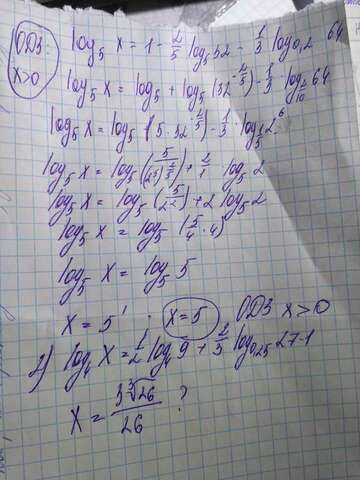 ОДЗ:
x>0
log₅ x = 1 - 2/5 log₅ 32 - 1/3 log₀,₂ 64
log₅ x = log₅ + log₅ (32^(-2/5)) - 1/3 log_(2/10) 64
log₅ x = log₅ (5 · 32^(-2/5)) - 1/3 log_(1/5) 2⁶
log₅ x = log₅ (5/(2⁵)^(2/5)) + 2/1 log₅ 2
log₅ x = log₅ (5/2²) + 2 log₅ 2
log₅ x = log₅ (5/4 · 4)
log₅ x = log₅ 5
x = 5¹ · x = 5 ОДЗ x>0
2) log₄ x = 1/2 log₄ 9 + 2/3 log₀,₂₅ 27 - 1
x = 3∛26/26 ?